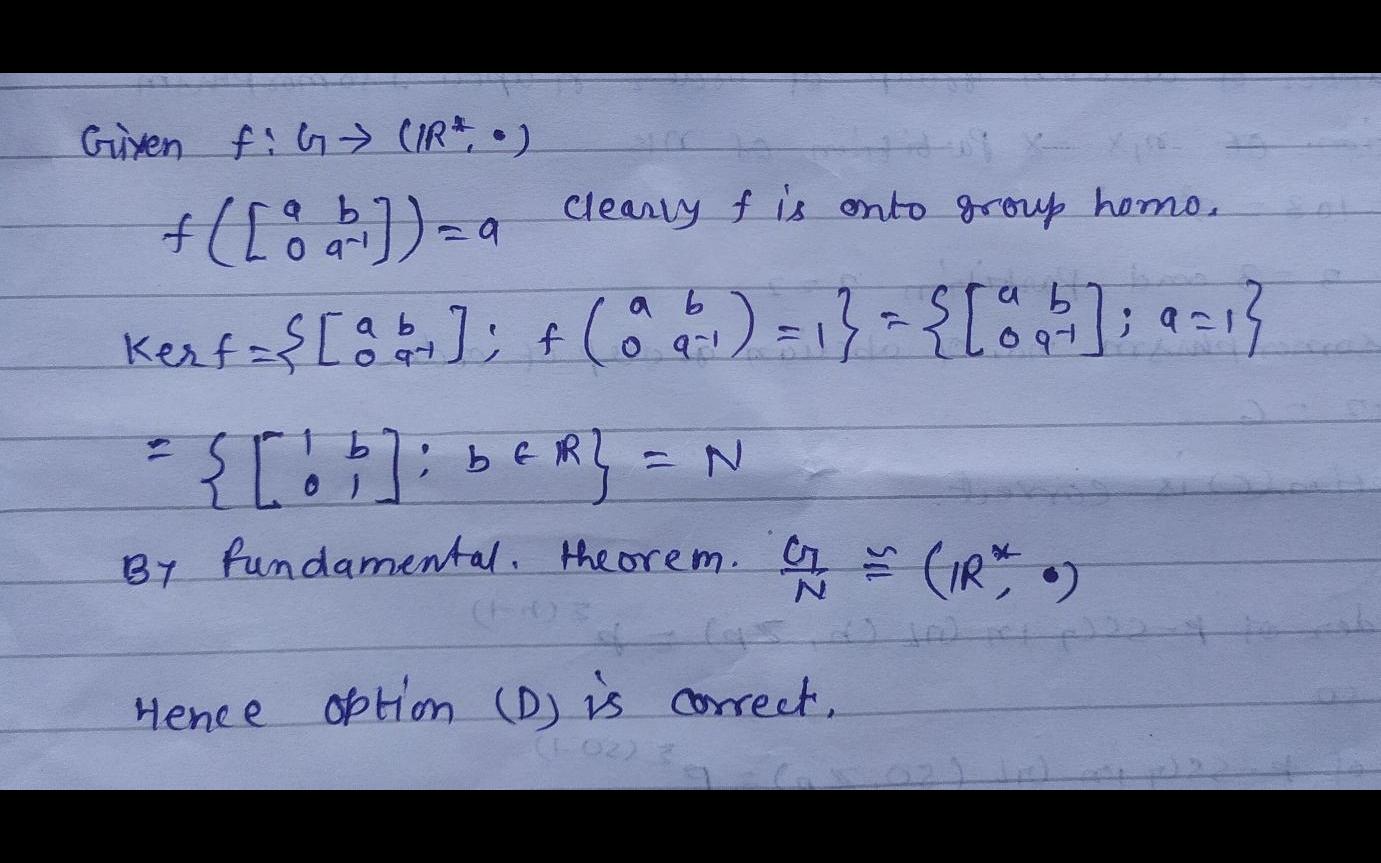 Given f: G → (ℝ*, •)
f([a b; 0 a⁻¹]) = a clearly f is onto group homo.
Ker f = {[a b; 0 a⁻¹]; f(a b; 0 a⁻¹) = 1} = {[a b; 0 a⁻¹]; a = 1}
= {[1 b; 0 1]; b ∈ ℝ} = N
By fundamental. theorem. G/N ≅ (ℝ*, •)
Hence option (D) is correct.